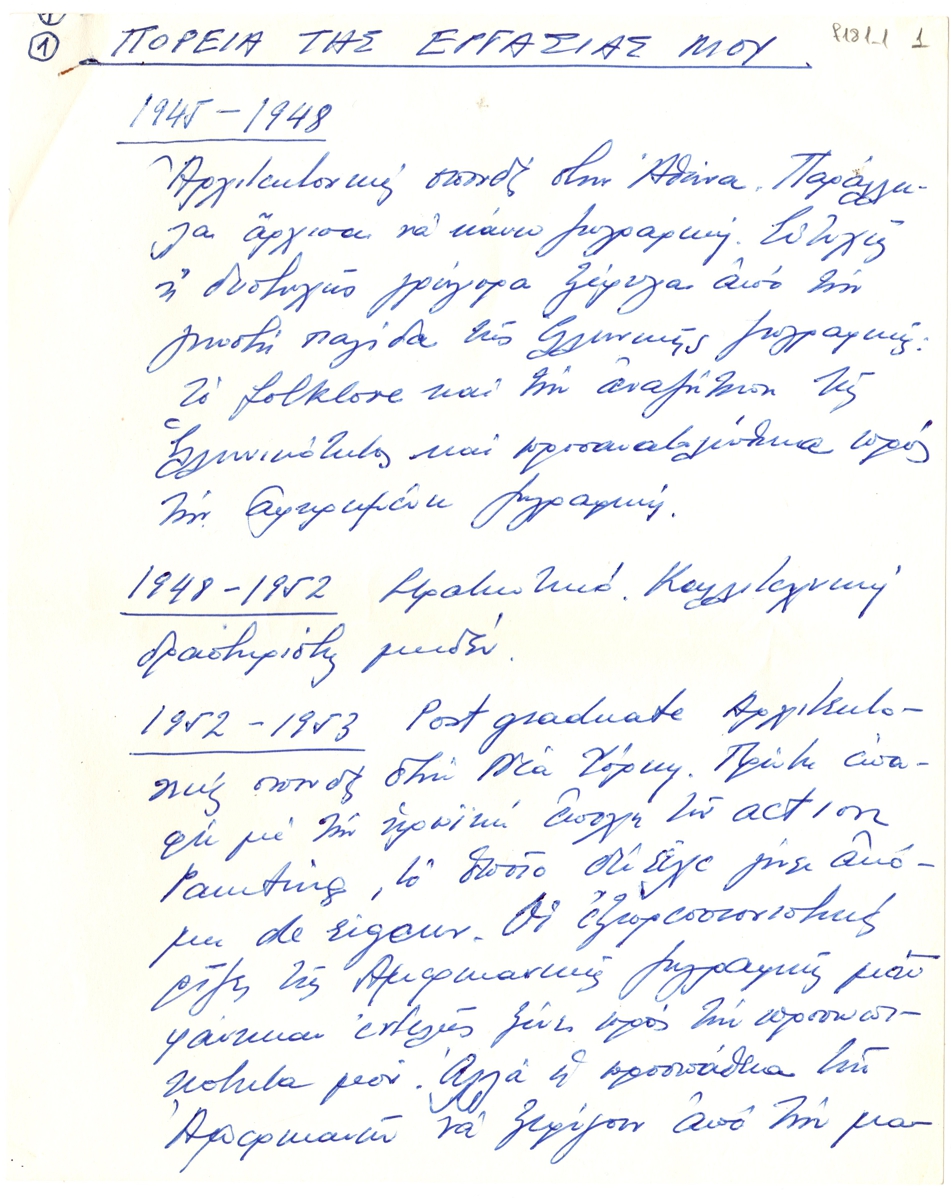 ① ΠΟΡΕΙΑ ΤΗΣ ΕΡΓΑΣΙΑΣ ΜΟΥ 1
1945 – 1948
Ἀρχιτεκτονικές σπουδές στήν Ἀθήνα. Παράλλη-
λα ἄρχισα νά κάνω ζωγραφική. Εὐτυχῶς
ἤ δυστυχῶς γρήγορα ξέφυγα ἀπό τήν
γνωστή παγίδα τῆς Ἑλληνικῆς ζωγραφικῆς:
τό folklore καί τήν ἀναζήτηση τῆς
Ἑλληνικότητος καί προσανατολίσθηκα πρός
τήν ἀφηρημένη ζωγραφική.
1948 – 1952 Στρατιωτικό. Καλλιτεχνική
δραστηριότης μηδέν.
1952 – 1953 Post graduate Ἀρχιτεκτο-
νικές σπουδές στήν Νέα Υόρκη. Πρώτη ἐπα-
φή μέ τήν ἡρωϊκή ἐποχή τῆς action
Painting, τό ὁποῖο δέν εἶχε γίνει ἀκό-
μη de rigeur. Οἱ ἐξπρεσσιονιστικές
ρίζες τῆς Ἀμερικανικῆς ζωγραφικῆς μοῦ
φάνηκαν ἐντελῶς ξένες πρός τήν προσωπι-
κότητα μου. Ἀλλά ἡ προσπάθεια τῶν
Ἀμερικανῶν νά ξεφύγουν ἀπό τήν μα-